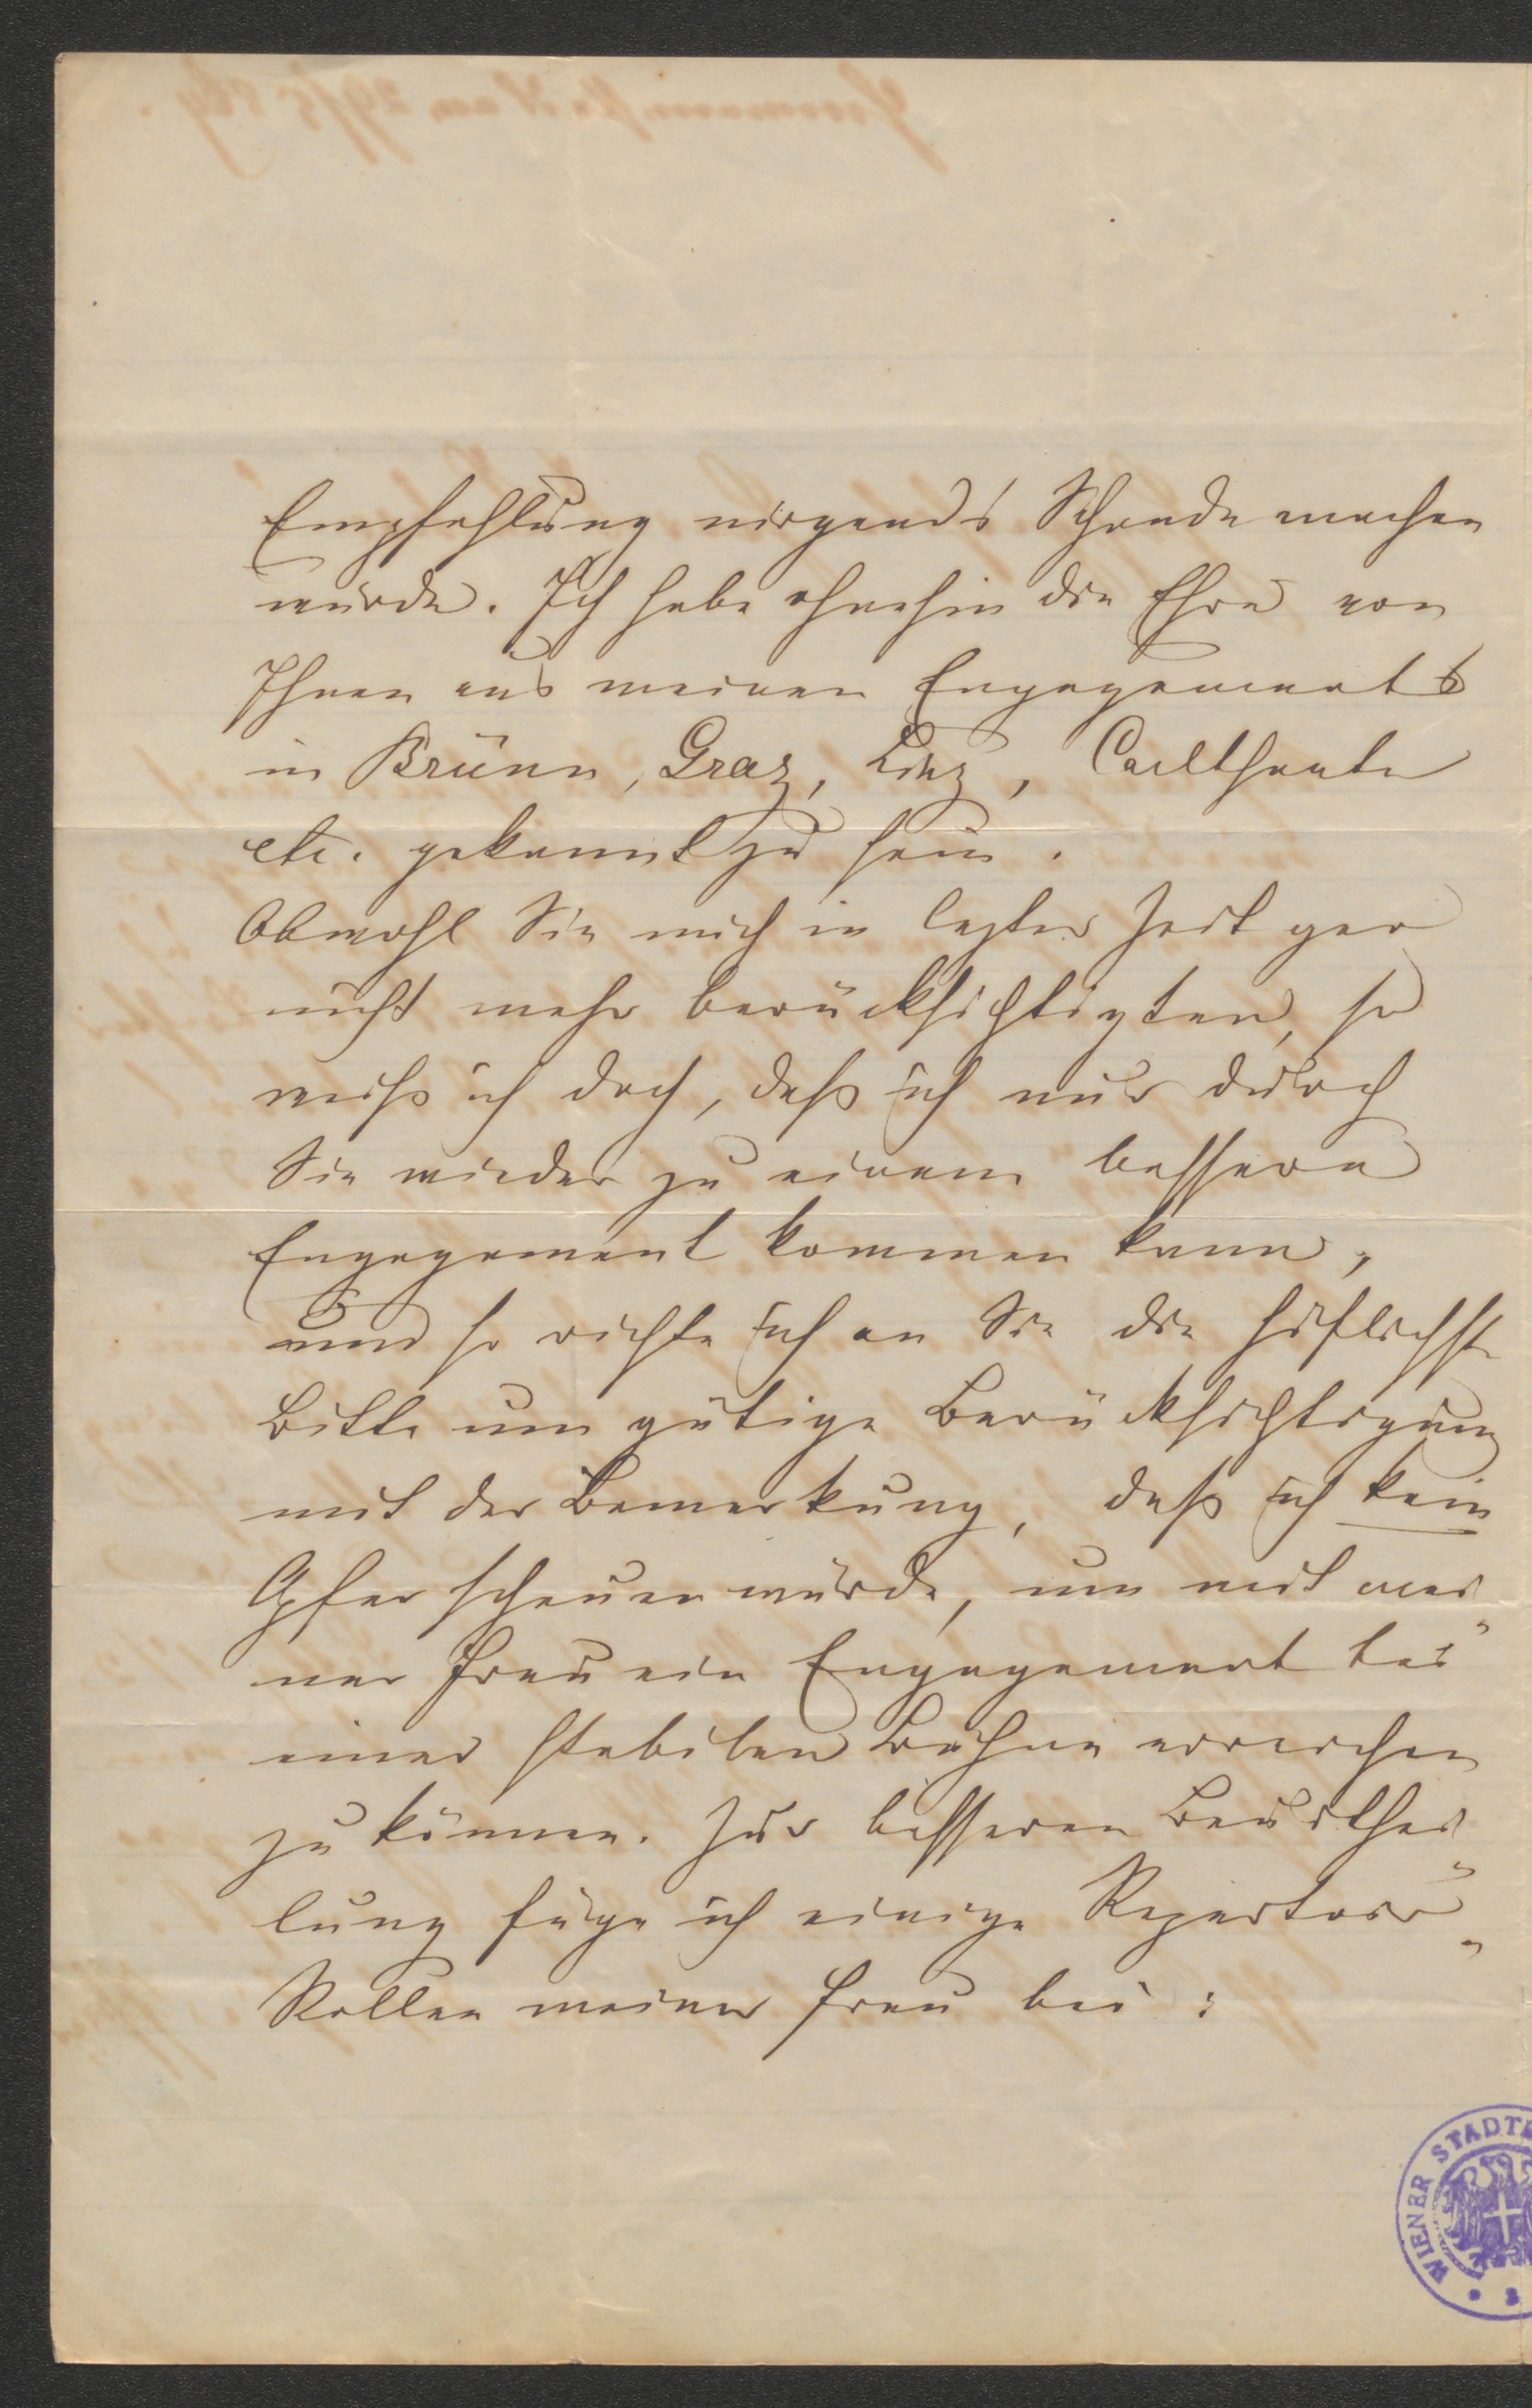 Empfehlung nirgends Schande machen
würde. Ich habe ohnehin die Ehre von
Ihnen aus meinen Engagements
in Brünn, Graz, Linz, Carltheater
etc. gekannt zu sein.
Obwohl Sie mich in letzter Zeit gar
nicht mehr berücksichtigten, so
weiß ich doch, daß ich nur durch
Sie wieder zu einem bessern
Engagement kommen kann,
und so richte ich an Sie die höflichste
Bitte um gütige Berücksichtigung
mit der Bemerkung, daß ich kein
Opfer scheuen würde, um mit mei„
ner Frau ein Engagement bei
einer stabilen Bühne erreichen
zu können. Zur besseren Beurthei„
lung füge ich einige Repertoir„
Rollen meiner Frau bei:
WIENER STADT